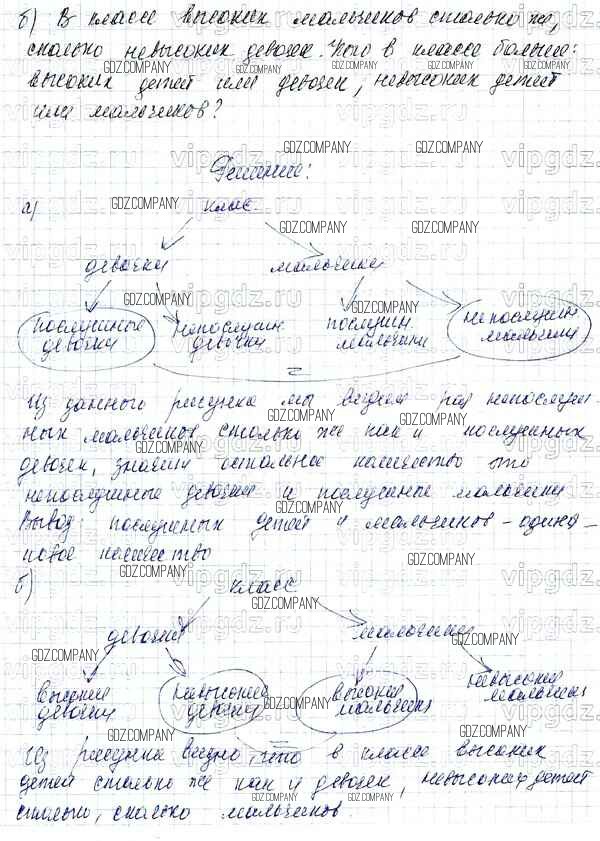 б) В классе высоких мальчиков столько же,
сколько невысоких девочек. Чего в классе больше:
высоких детей или девочек, невысоких детей
или мальчиков?
Решение:
а) клас.
девочки мальчики
послушные девочки непослушн. девочки послушн. мальчики непослушн мальчики
=
Из данного рисунка мы видим непослуш-
ных мальчиков столько же как и послушных
девочек, значит остальное количество это
непослушные девочки и послушные мальчики
Вывод: послушных детей и мальчиков - один-
ковое количество
б) класс
девочки мальчики
высокие девочки невысокие девочки высокие мальчики невысокие мальчики
=
Из рисунка видно, что в классе высоких
детей столько же как и девочек, невысоких детей
столько, сколько мальчиков.
GDZ.COMPANY
vipgdz.ru